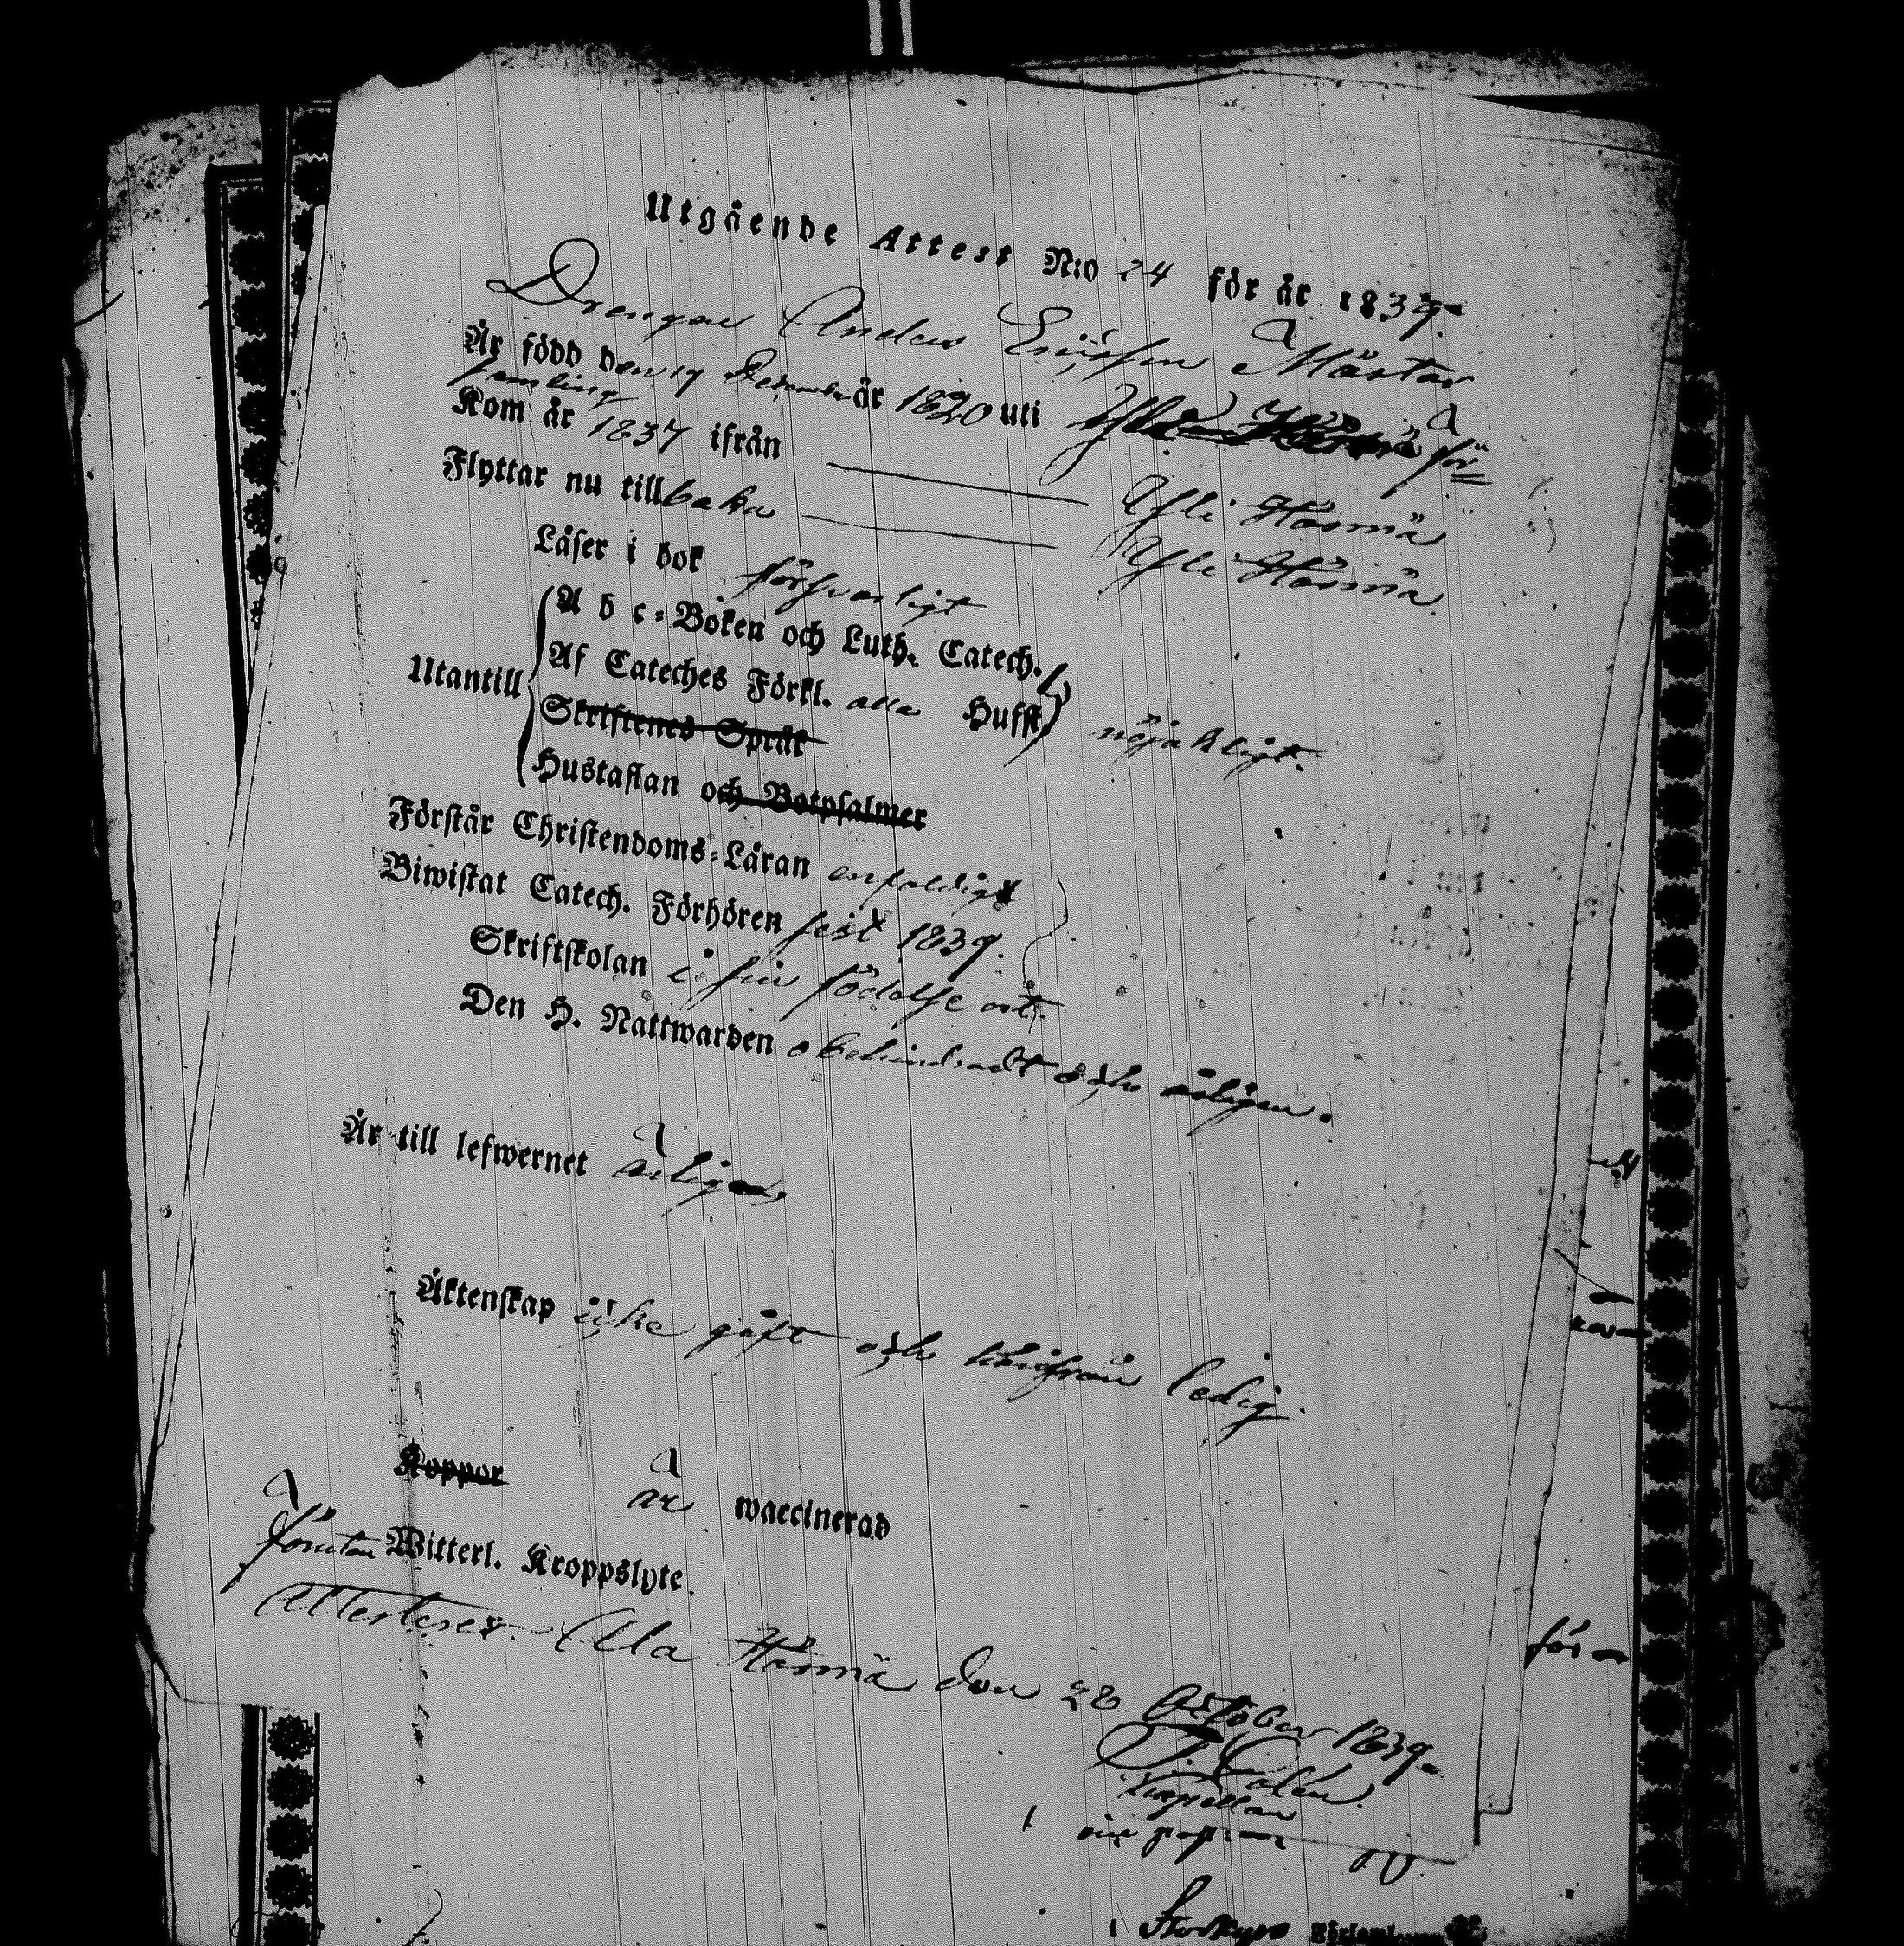 Utgående Attest N:o 24 för år 1839.
Drengen Anders Ericsson Mårtar
Är född den 19 December år 1820 uti Yli för
samling
Kom år 1837 ifrån Yli Härmä
Flyttar nu tillbaka Yli Härmä.
Läser i bok försvarligt
Utantill
A b c-Boken och Luth. Catech.
Af Cateches Förkl. alla Hufst. nöjaktigt.
Skriftenes Språk
Hustaflan och Botpsalmer
Förstår Christendoms-Läran enfaldigt
Biwistat Catech. Förhören sist 1839.
Skriftskolan i sin födelse ort.
Den H. Nattwarden obehindradt och årligen.
Är till lefwernet ärligen
Äktenskap icke gift och härifrån ledig.
Koppor är waccinerad
förutan Witterl. Kroppslyte.
Attesterar. Ala Härmä den 28 October 1839.
Kapellan
vice pastor
för
i Storkyro